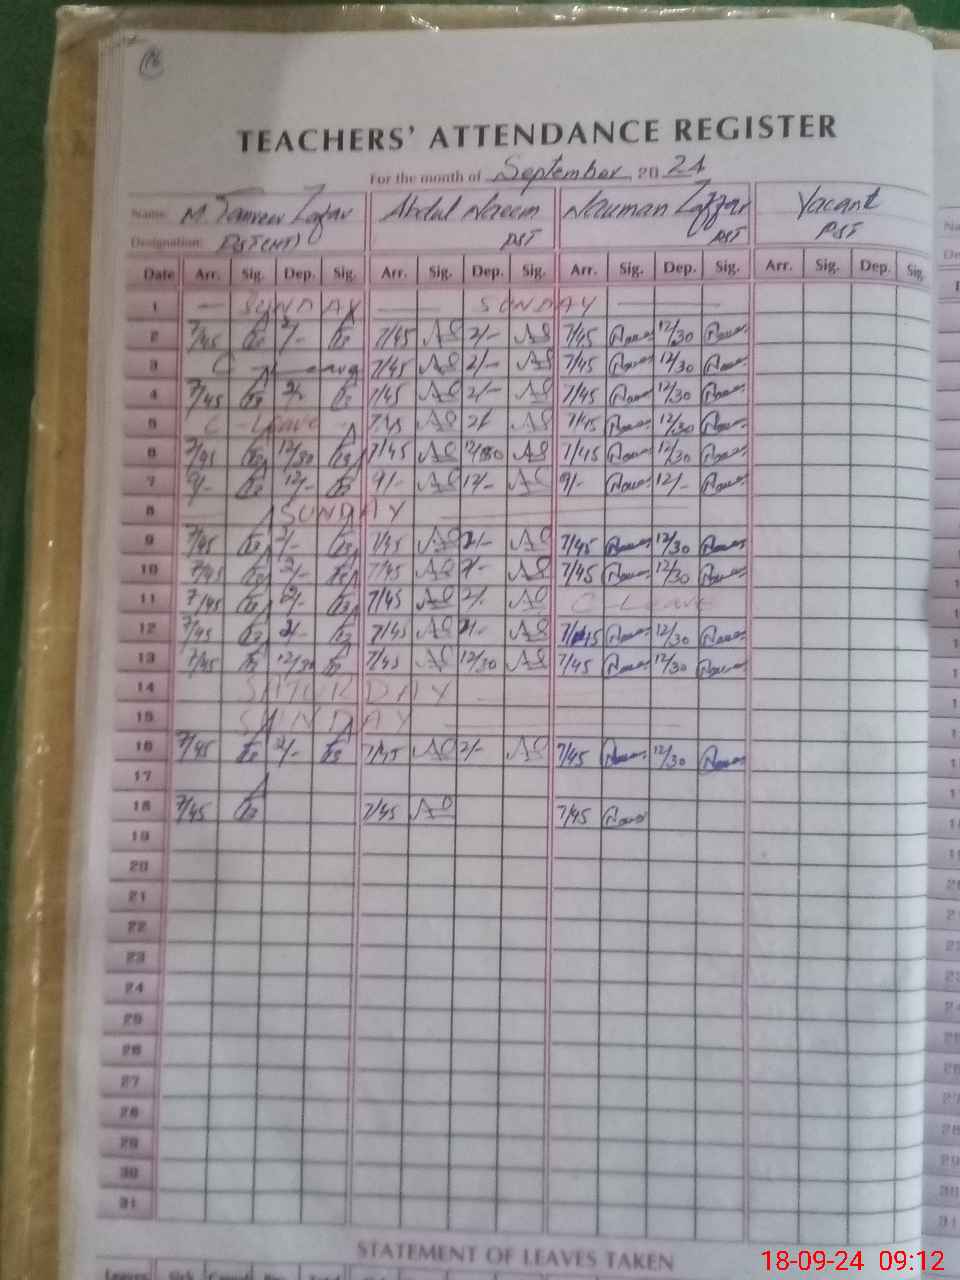 16
TEACHERS' ATTENDANCE REGISTER
For the month of September 2024
Name: M. Tanveer Zafar Abdul Naeem Nauman Zaffar Vacant
Designation: PST(HT) PST PST PST
Date Arr. Sig. Dep. Sig. Arr. Sig. Dep. Sig. Arr. Sig. Dep. Sig. Arr. Sig. Dep. Sig.
1 SUNDAY SUNDAY
2 7/45 2/- 7/45 2/- 7/45 12/30
3 C - Leave 7/45 2/- 7/45 12/30
4 7/45 2/- 7/45 2/- 7/45 12/30
5 C - Leave 7/45 2/ 7/45 12/30
6 7/45 12/30 7/45 12/30 7/45 12/30
7 9/- 12/- 9/- 12/- 9/- 12/-
8 SUNDAY
9 7/45 2/- 7/45 2/- 7/45 12/30
10 7/45 2/- 7/45 2/- 7/45 12/30
11 7/45 2/- 7/45 2/- C - Leave
12 7/45 2/- 7/45 2/- 7/45 12/30
13 7/45 12/30 7/45 12/30 7/45 12/30
14 SATURDAY
15 SUNDAY
16 7/45 2/- 7/45 2/- 7/45 12/30
17
18 7/45 7/45 7/45
19
20
21
22
23
24
25
26
27
28
29
30
31
STATEMENT OF LEAVES TAKEN
Leaves Sick Casual
18-09-24 09:12